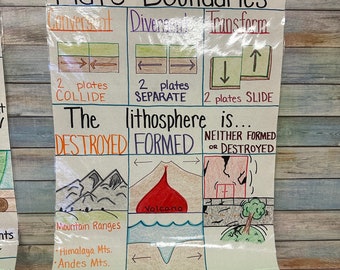 Plate Boundaries
Convergent Divergent Transform
2 plates COLLIDE
2 plates SEPARATE
2 plates SLIDE
The lithosphere is...
DESTROYED FORMED NEITHER FORMED OR DESTROYED
Volcano
Mountain Ranges
• Himalaya Mts.
• Andes Mts.